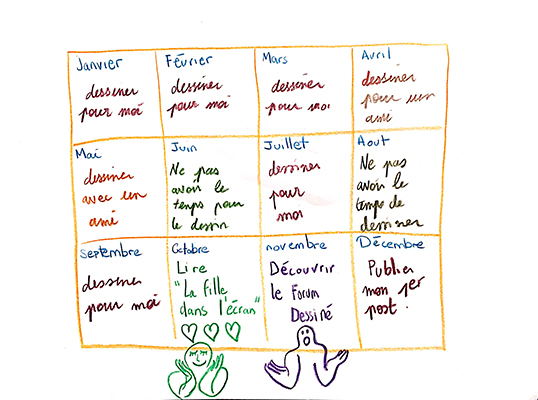 Janvier
dessiner
pour moi
Février
dessiner
pour moi
Mars
dessiner
pour moi
Avril
dessiner
pour un
ami
Mai
dessiner
avec un
ami
Juin
Ne pas
avoir le
temps pour
le dessin
Juillet
dessiner
pour
moi
Aout
Ne pas
avoir le
temps de
dessiner
Septembre
dessiner
pour moi
Octobre
Lire
"La fille
dans l'écran"
novembre
Découvrir
le Forum
Dessiné
Décembre
Publier
mon 1er
post.